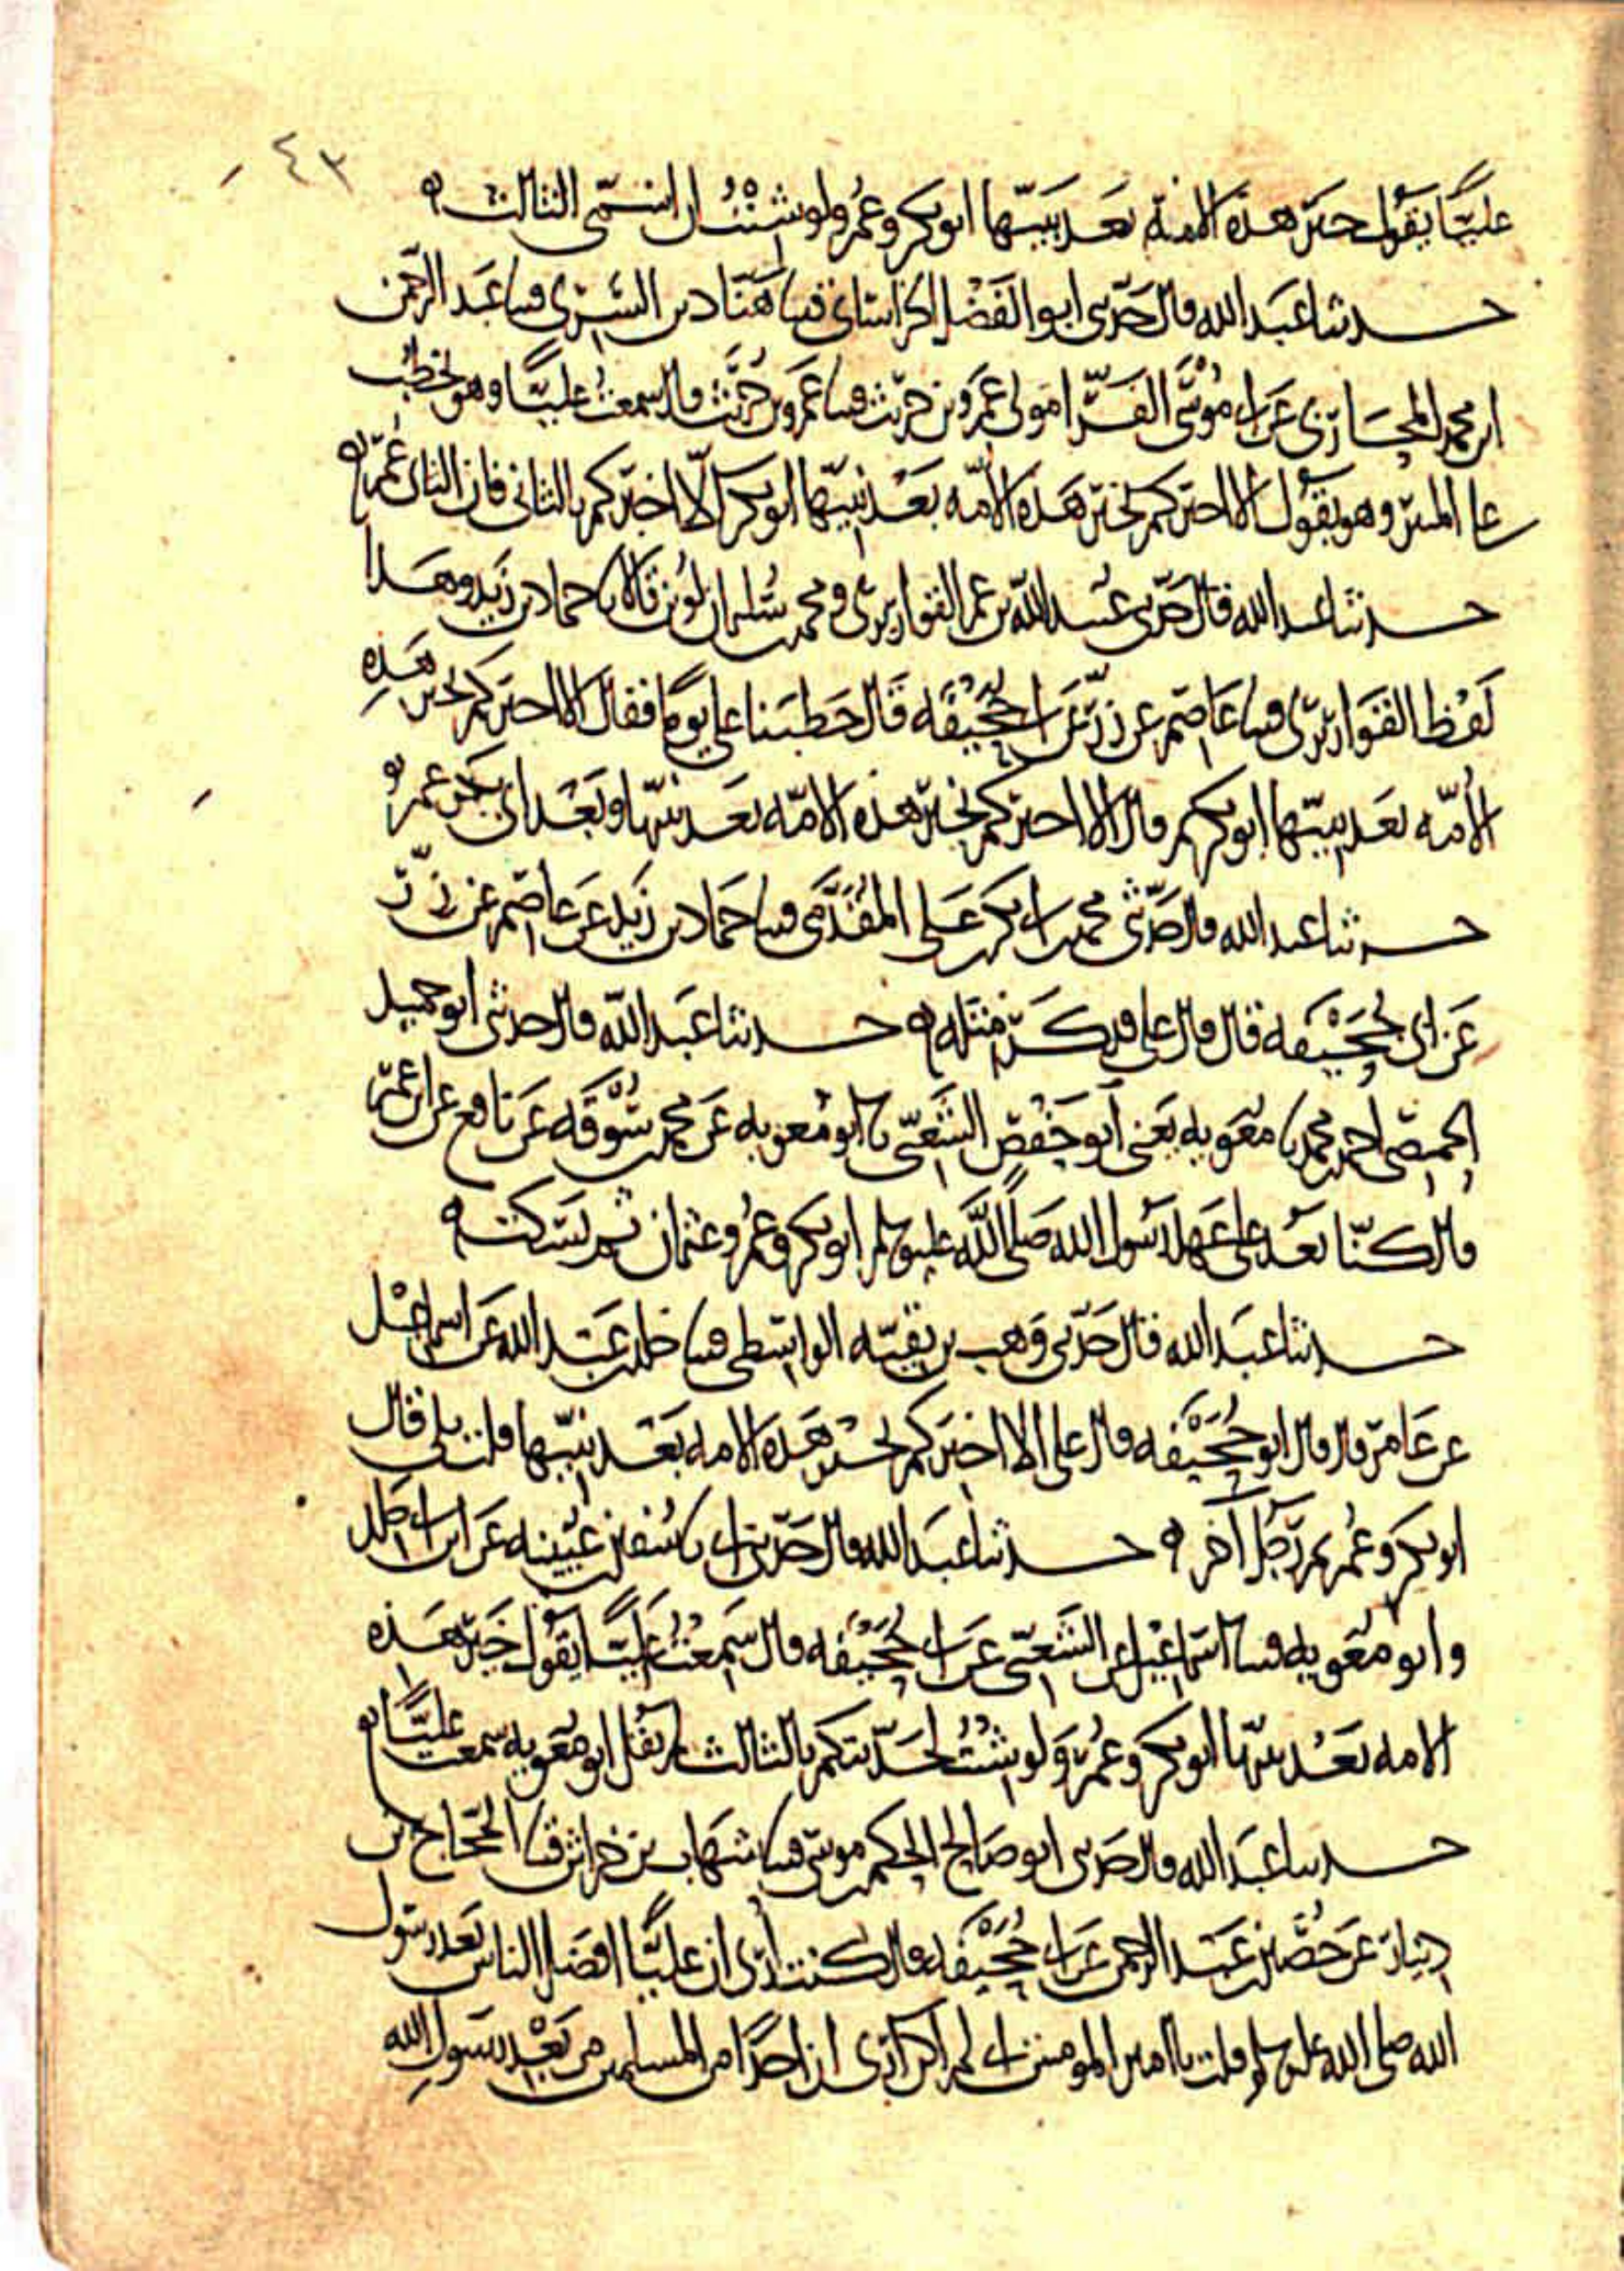 ٤٣
عليًا يقول خير هذه الامة بعد نبيّها ابو بكر وعُمر ولو شئتُ ان اسمّي الثالث ه
حدثنا عبد الله قال حدّثني ابو الفَضْل الخراساني قثنا هنّاد بن السَّري قثنا عَبد الرحمن
ابن محمد المحاربي عن ابي موسى الفرّا مولى عَمرو بن حريث قثنا عَمرو بن حُرَيث قال سمعتُ عليًّا وهو يخطب
على المنبر وهو يقول الا اخبركم بخير هَذه الامّه بَعْد نبيّها ابو بكر الا اخبركم بالثاني فان الثاني عُمر ه
حدثنا عبد الله قال حدّثني عُبيد الله بن عمر القواريري ومحمد بن سُليمان لُوَيْن قالا نا حماد بن زيد وهَذا
لَفْظ القواريري قثنا عَاصم عن زرّ عَن ابي جُحَيْفَه قَال خَطبَنا علي يومًا فقال الا اخبركم بخير هَذِه
الأُمّه بَعد نبيّها ابو بكر ثم قال الا اخبركم بخير هذه الامّه بَعد نبيّها وبَعْد ابي بكر عمر ه
حدثنا عبد الله قال حدّثني محمد بن ابي بكر بن عَلي المقَدَّمي قثنا حَمّاد بن زَيد عَن عاصم عن زرّ
عَن ابي جُحَيْفَه قال قال علي فذكَر مثله ه حدثنا عَبد الله قال حدثني ابو حميد
الحمصي احمد بن محمد نا معَويه يَعني ابو حَفْص الشَّعْبي نا ابو مُعَويه عَن محمد بن سُوْقَه عَن نافع عن ابن عُمر
قال كنّا نَعُد على عَهد رَسُول الله صَلى اللَّه عليه وسلم ابو بكر وعُمر وعثمان ثم نسكت ه
حدثنا عَبد الله قال حَدّثني وَهب بن بقيّه الواسطي قثنا خلد بن عَبد الله عَن اسماعيْل
عن عَامر قال قال ابو جُحَيْفَه قال علي الا اخبركم بخير هَذه الامه بَعْد نبيّها قلت بلى قال
ابو بكر وعُمر ثم رَجُل آخر ه حدثنا عَبد الله قال حَدّثني ابي نا سُفين بن عُيَينه عَن ابن ابي خلد
وابو معَويه قثنا اسماعيْل عن الشَّعْبي عَن ابي جُحَيْفَه قال سَمعْتُ عَليًّا يَقُول خَير هَذه
الامه بَعْد نبيّها ابو بكر وعُمر وَلو شئْتُ لحَدّثتكم بالثالث لم يَقُل ابو مُعَويه سمعت عليًّا ه
حدثنا عَبد الله قال حَدّثني ابو صَالح الحكم بن موسى قثنا شهَاب بن خراش قثنا الحجّاج بن
دينار عَن حُصَيْن بن عَبد الرحمن عَن ابي جُحَيْفَه قال كنت أرى ان عليًّا افضَل الناس بَعْد رَسُول
الله صلى الله عليه وسلم قلت يا امير المومنين اني لم اكن ارى ان احدًا من المسلمين من بَعْدِ رَسُولِ الله